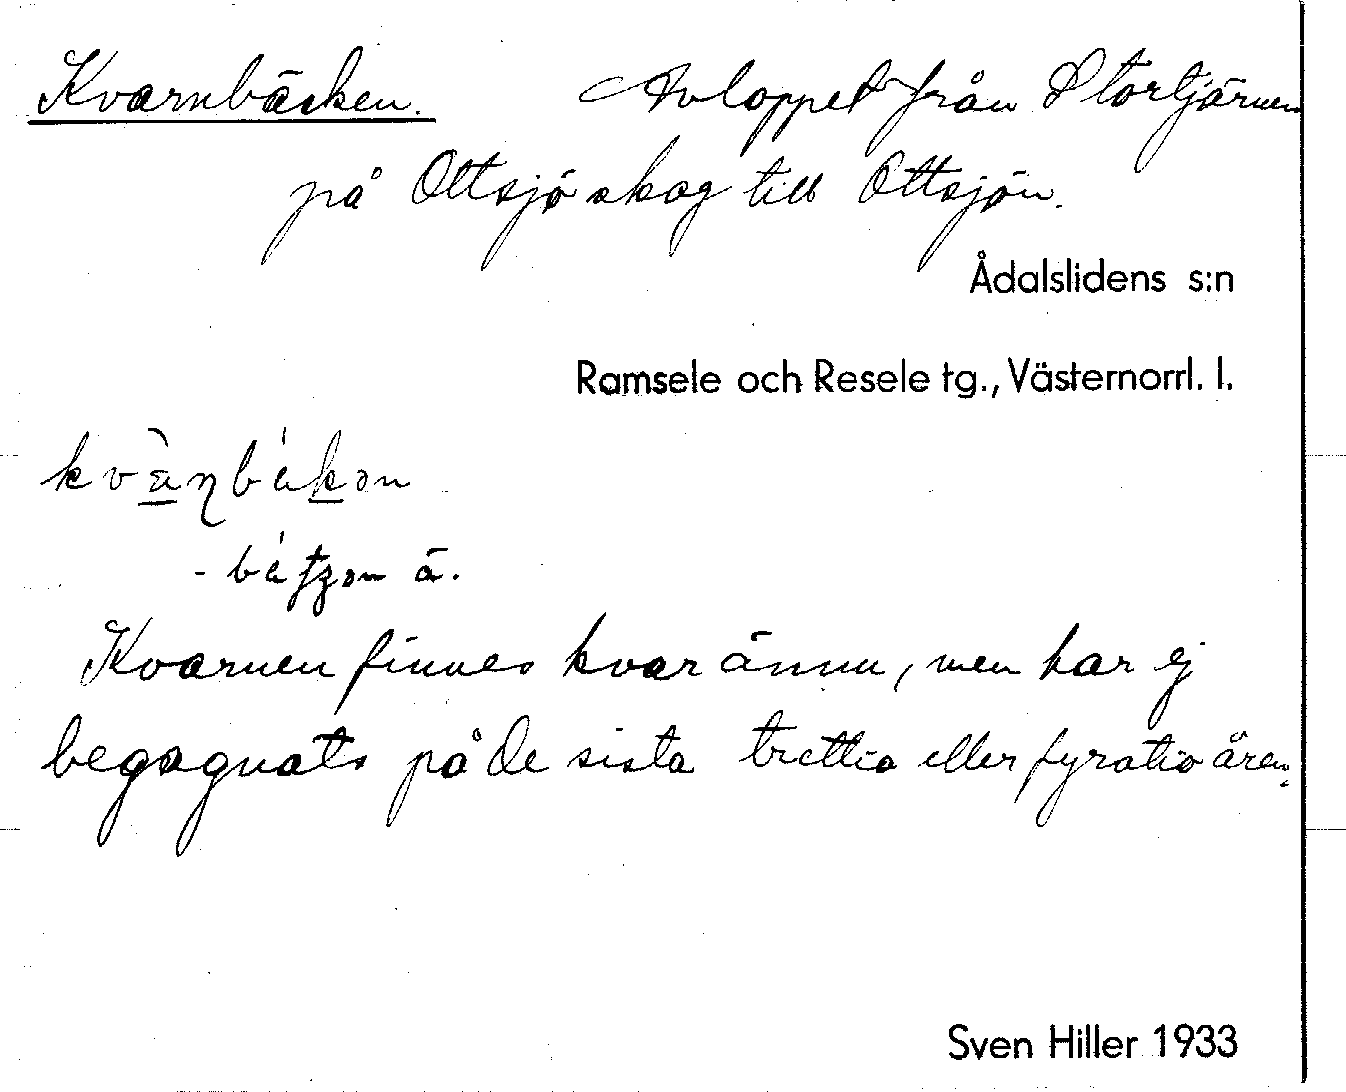 Kvarnbäcken. Avloppet från Stortjärnen
på Ottsjö skog till Ottsjön.
Ådalslidens s:n
Ramsele och Resele tg., Västernorrl. l.
ä.
Kvarnen finnes kvar ännu, men har ej
begagnats på de sista trettio eller fyratio åren.
Sven Hiller 1933